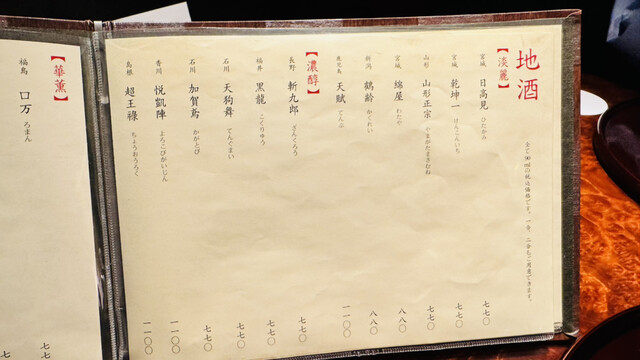 地酒
全て90mlの税込価格です。一合、二合もご用意できます。
【淡麗】
宮城 日高見 ひたかみ 七七〇
宮城 乾坤一 けんこんいち 七七〇
山形 山形正宗 やまがたまさむね 七七〇
宮城 綿屋 わたや 八八〇
新潟 鶴齢 かくれい 八八〇
鹿児島 天賦 てんぶ 一一〇〇
【濃醇】
長野 斬九郎 ざんくろう 七七〇
福井 黒龍 こくりゅう 七七〇
石川 天狗舞 てんぐまい 七七〇
石川 加賀鳶 かがとび 七七〇
香川 悦凱陣 よろこびがいじん 一一〇〇
島根 超王祿 ちょうおうろく 一一〇〇
【華薫】
福島 ロ万 ろまん 七七